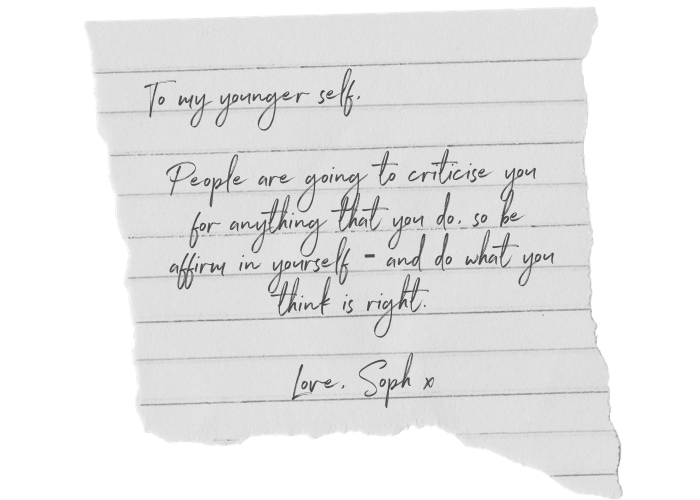 To my younger self.
People are going to criticise you
for anything that you do. so be
affirm in yourself - and do what you
think is right.
Love. Soph x